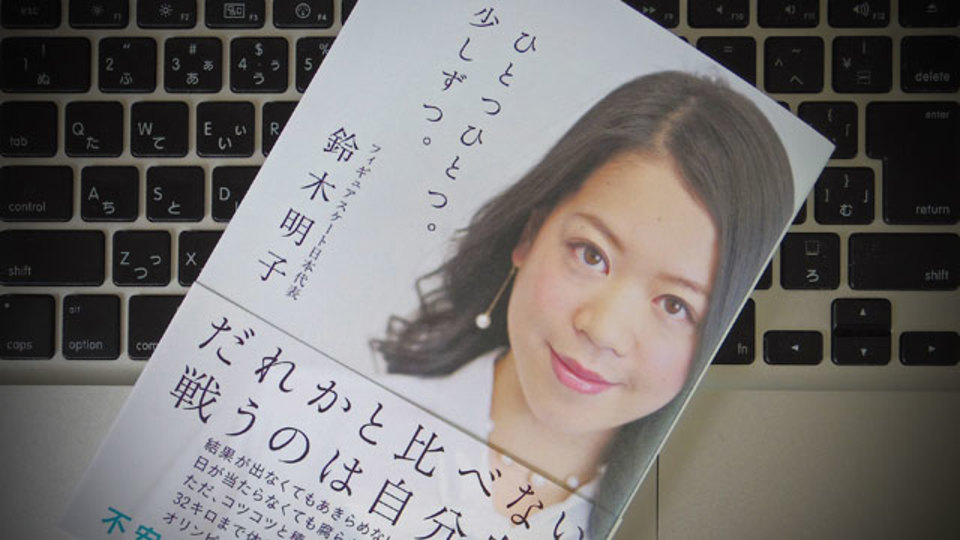 ひとつひとつ。
少しずつ。
鈴木明子
フィギュアスケート日本代表
だれかと比べない
戦うのは自分
結果が出なくてもあきらめない
日が当たらなくても腐ら
ただ、コツコツと
32キロまで体
オリンピ
不安
esc
F3
F4
F10
F11
F12
1 ぬ
2 ふ
# 3 ぁ あ
$ 4 ぅ う
5
delete
tab
Q た
W て
E ぃ い
R
enter
return
control
A ち
S と
D
む
shift
Z っ つ
X
ろ
shift
caps
alt
option
com
fn